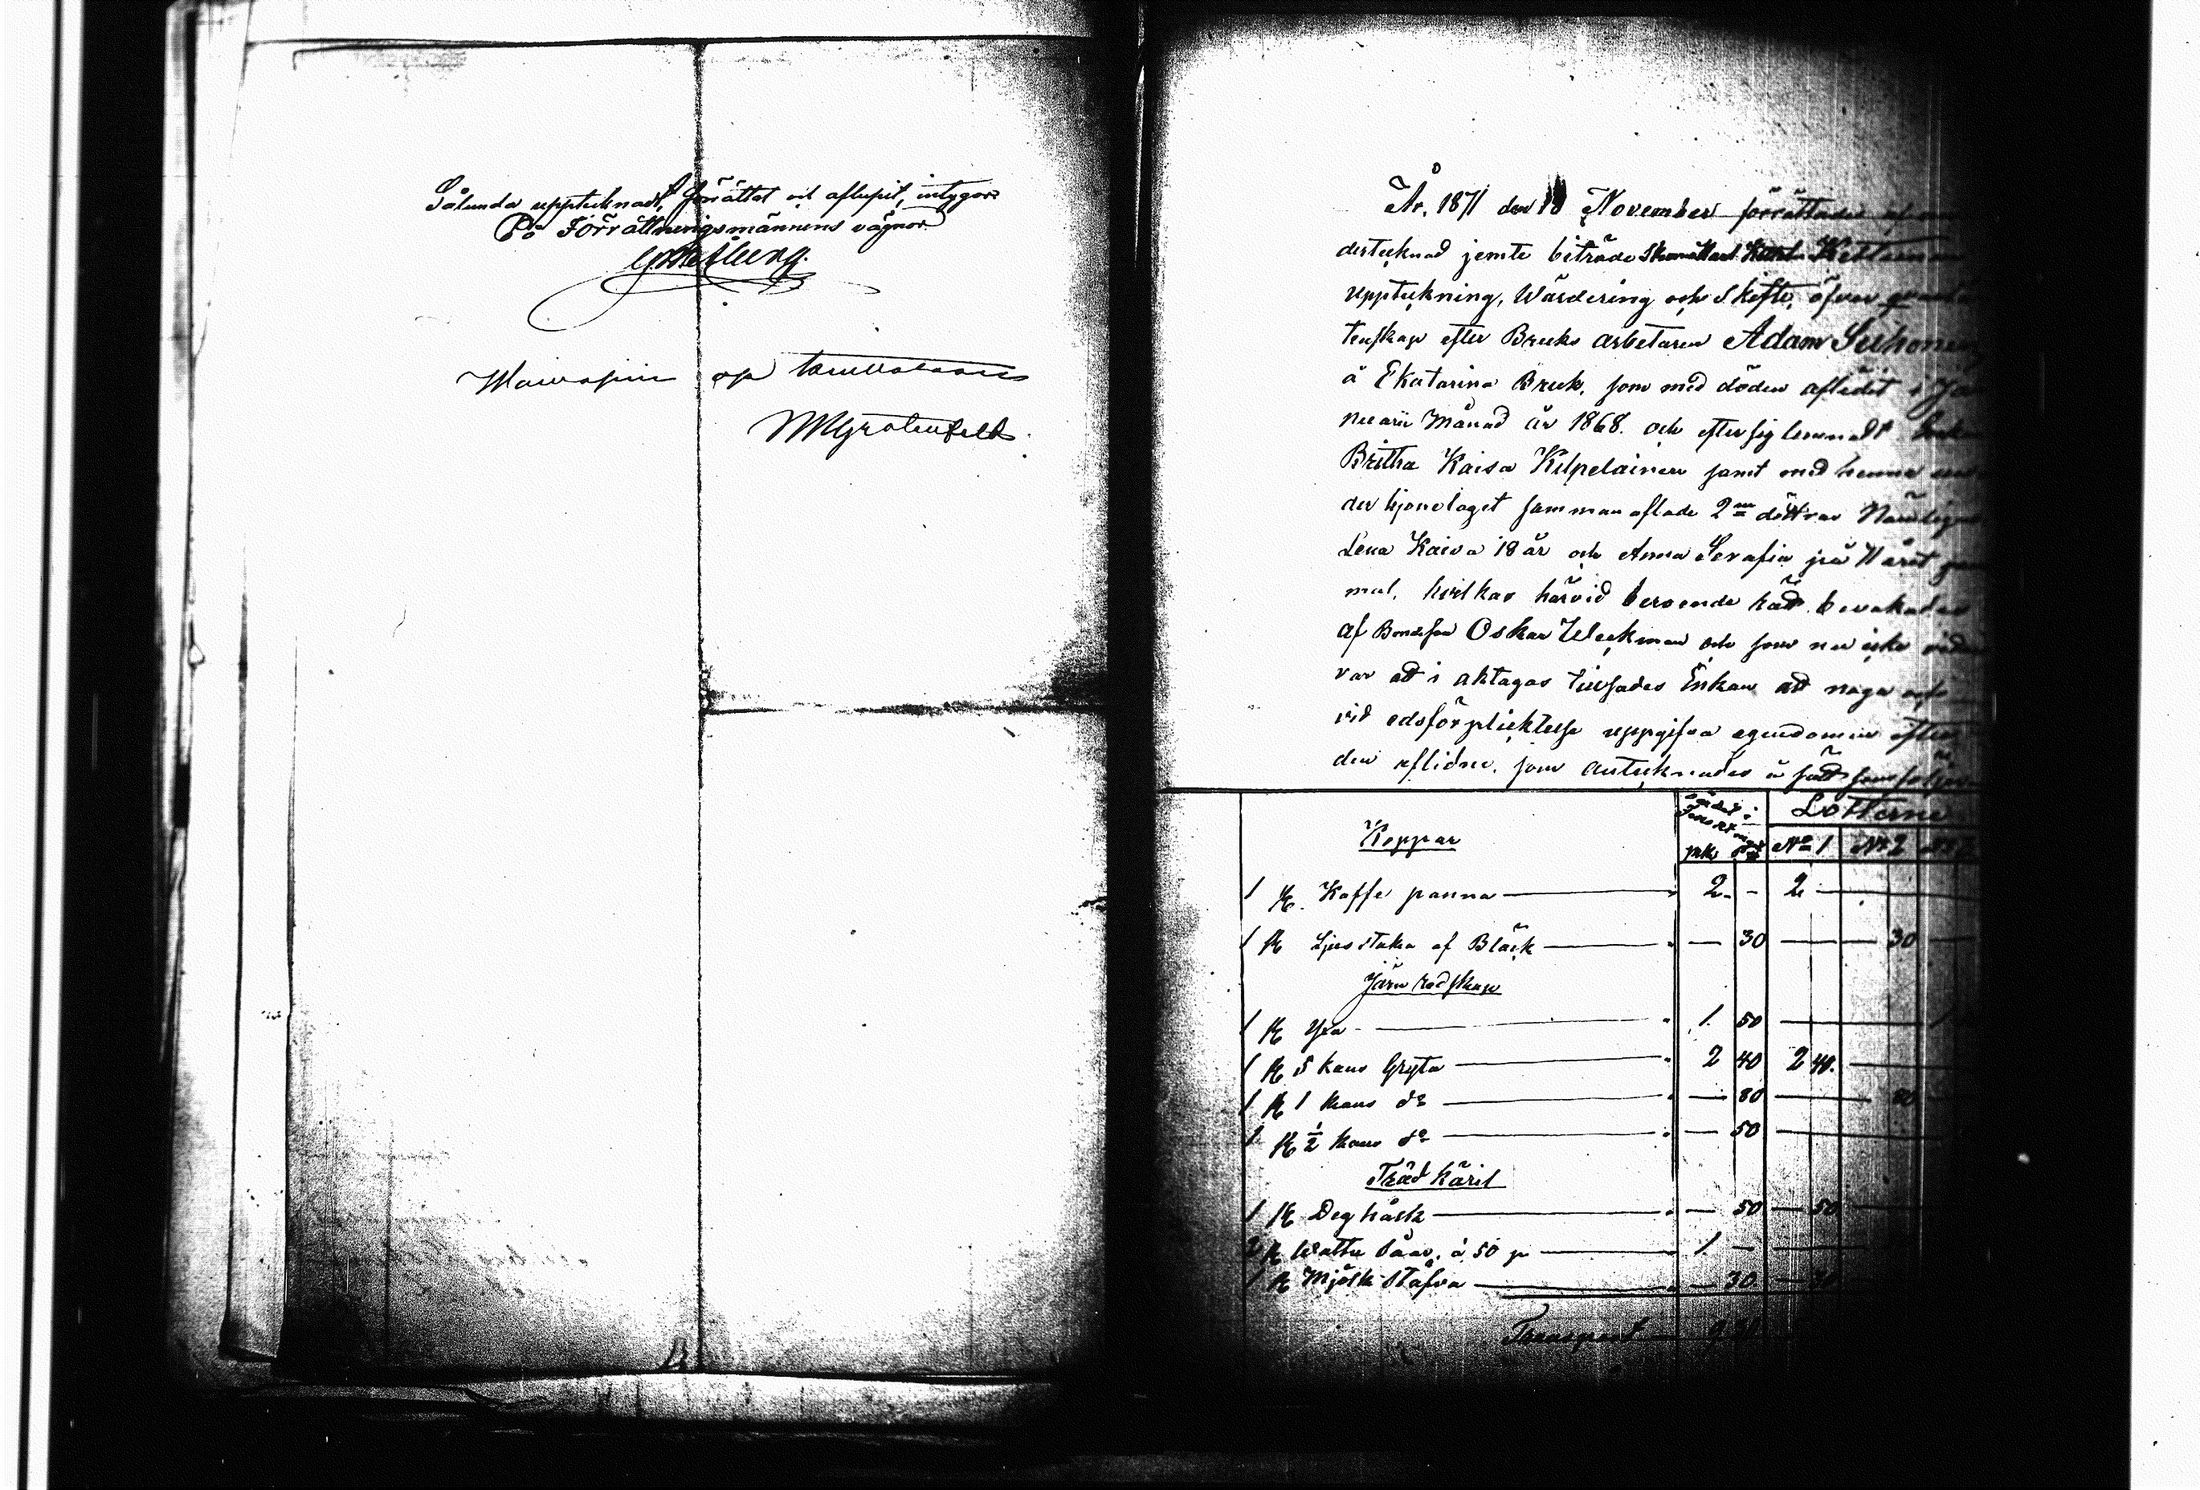 Sålunda upptecknadt, förrättat och aflupit, intygar
På Förrättningsmännens vägnar
År, 1871 den 18 November förrättades af un
dertecknad jemte biträde
uppteckning, Wärdering och Skifte, öfver qvarlå
tenskap efter Bruks arbetaren Adam Sirkonen
å Ekatarina Bruk, som med döden aflidit i Ja
nuarii Månad år 1868. och efter sig lemnadt Enkan
Britha Kaisa Kilpelainen samt med henne un
der hjonelaget sammanaflade 2ne döttrar Nämligen
Lena Kaisa 18 år och Anna Serafia på 11 året gam
mal, hvilkas härvid beroende rätt bevakades
af Bondeson Oskar Weckman och som nu icke vidare
var att i akttagas tillsades Enkan att noga och
vid edsförplicktelse uppgifva egendomen efter
den aflidne, som antecknades i sätt som följer
Koppar
Lotterne
mk No 1 No 2
1 st. Kaffe panna 2 - 2
1 st Ljusstaka af Bläck - 30 - 30
Järn redskap
1 st Yxa 1 50
1 st 5 kans Gryta 2 40 2 40
1 st 1 kans do - 80 80
1 st ½ kans do - 50
Träd Käril
1 st Deg håck - 50 - 50
2 st Wattu Såar, à 50 p 1 -
1 st Mjölk Stäfva - 30 - 30
Transport